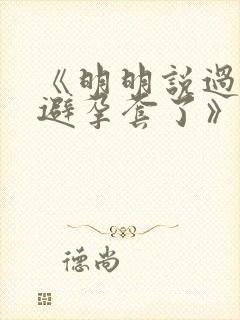 《明明說過
避孕套了》
德尚